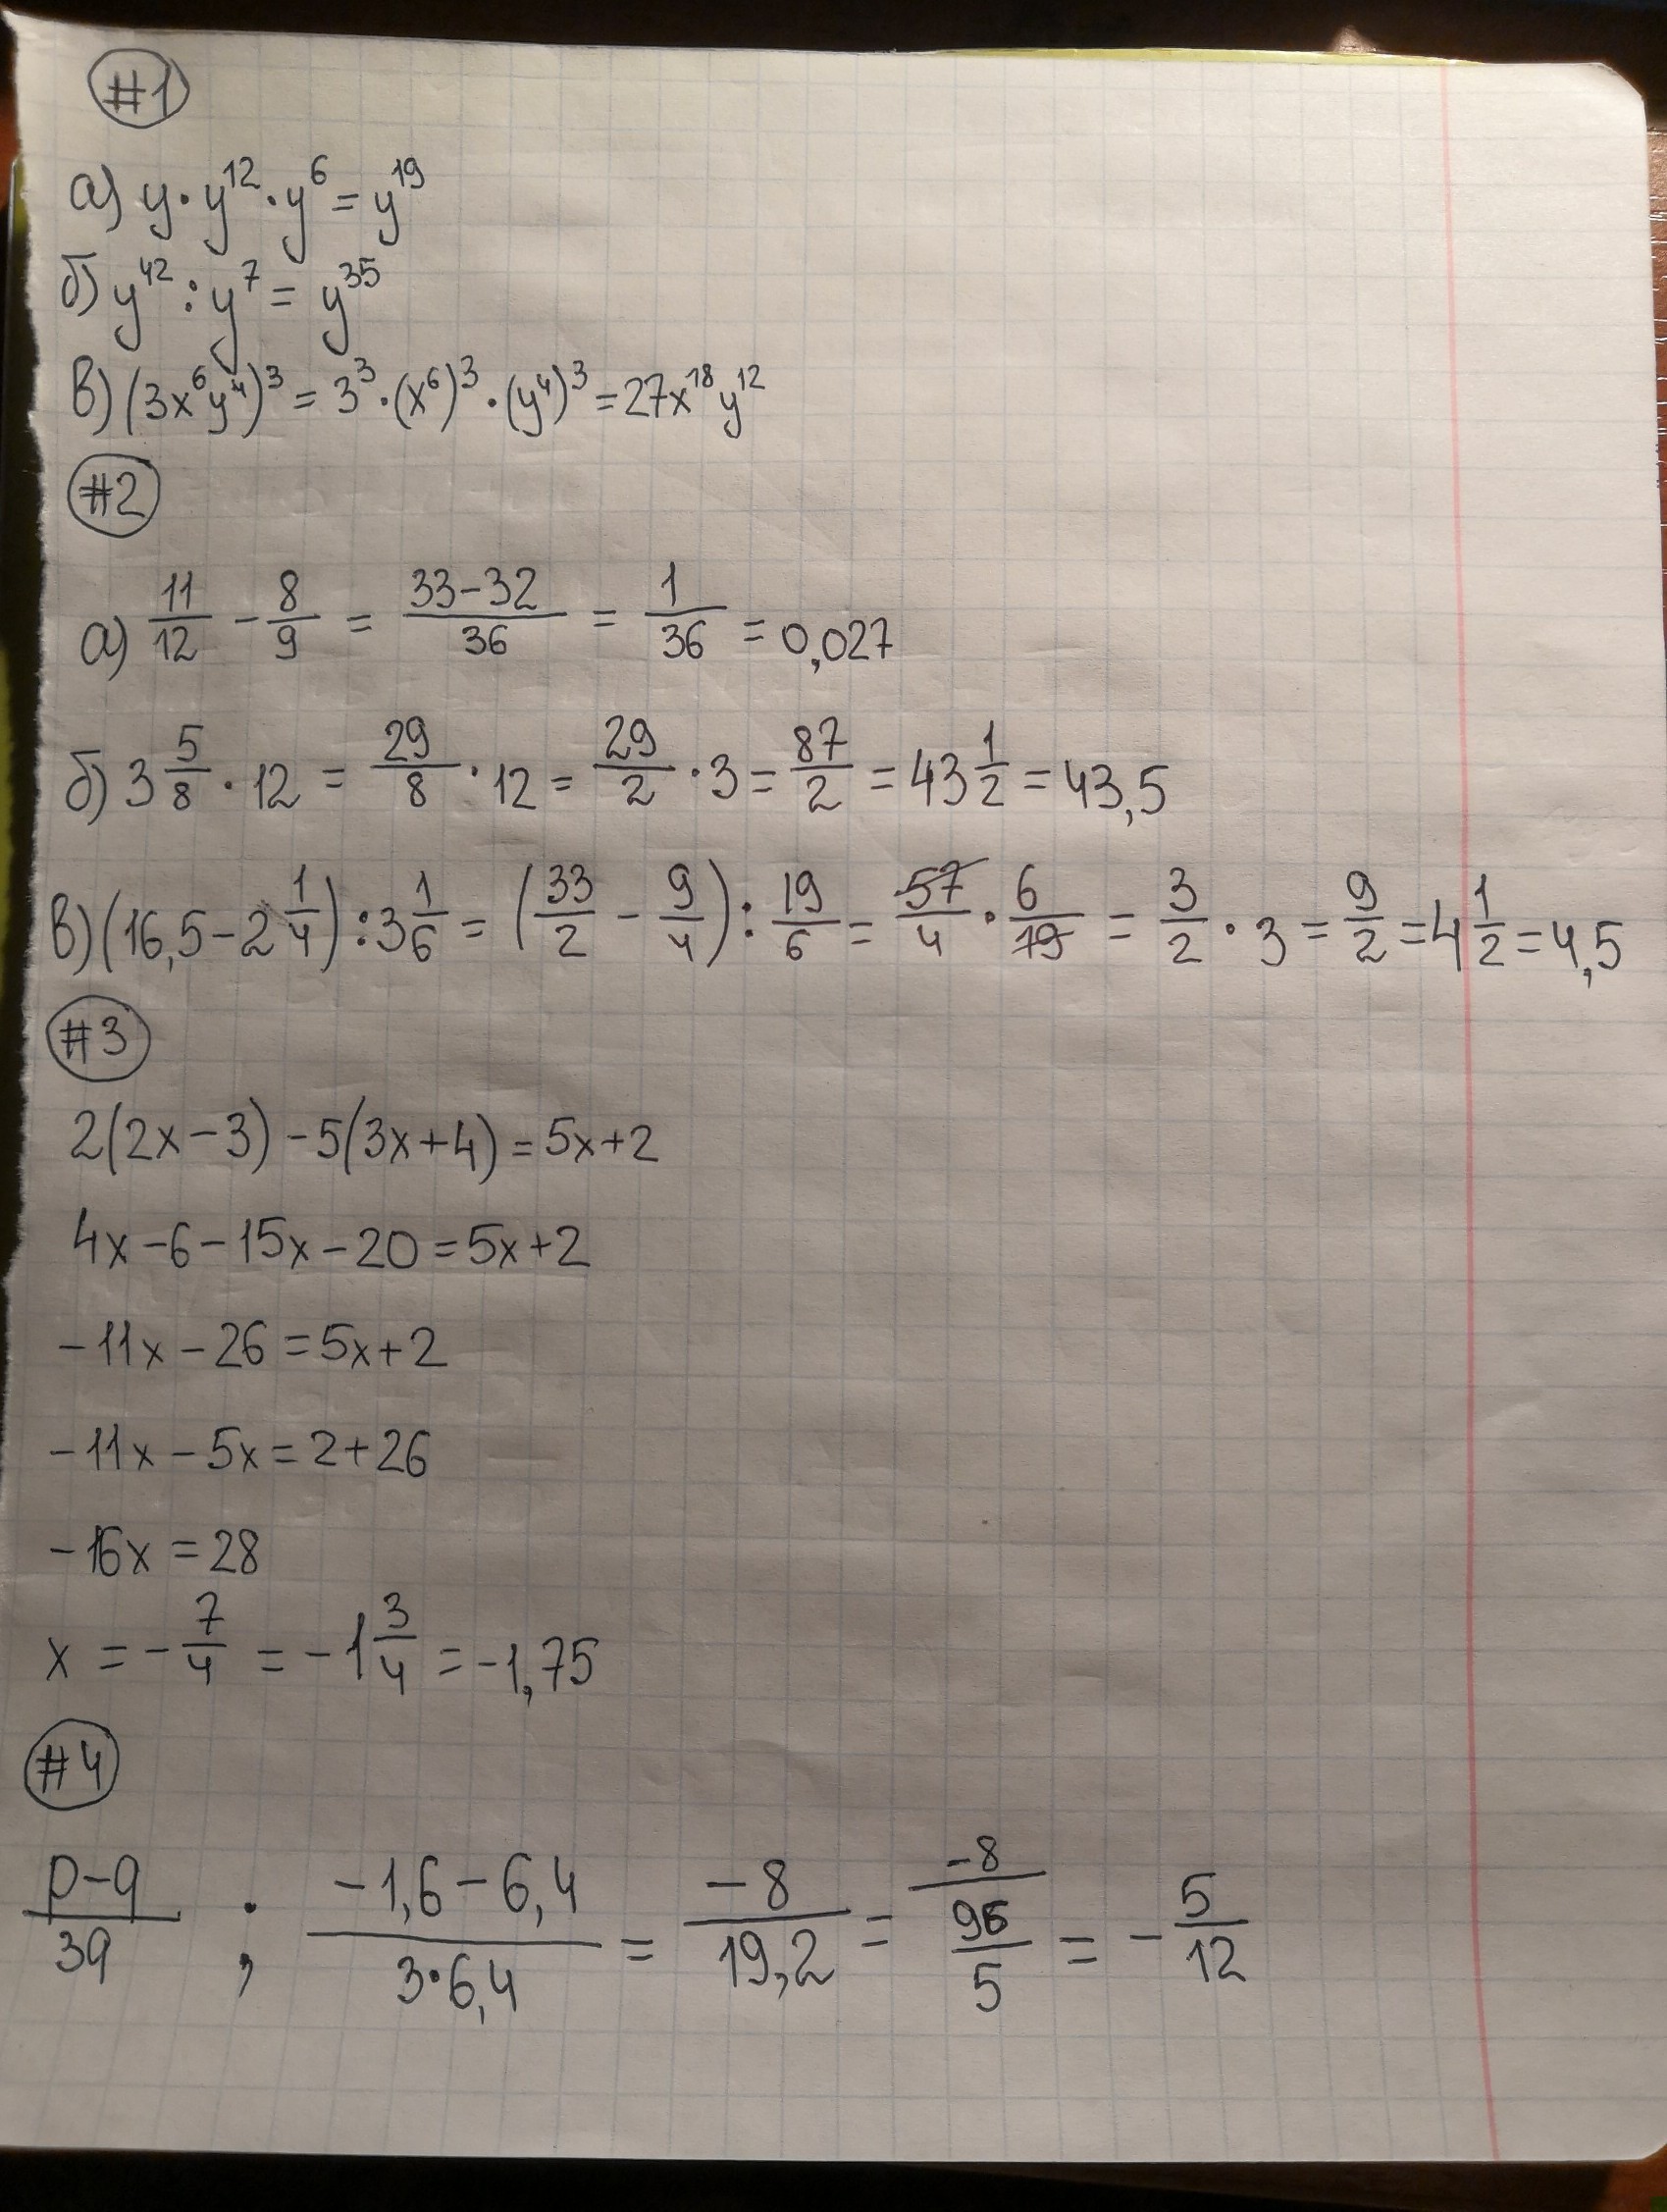 #1
а) y·y¹²·y⁶ = y¹⁹
б) y⁴² : y⁷ = y³⁵
в) (3x⁶y⁴)³ = 3³·(x⁶)³·(y⁴)³ = 27x¹⁸y¹²
#2
а) 11/12 - 8/9 = (33-32)/36 = 1/36 = 0,027
б) 3 5/8 · 12 = 29/8 · 12 = 29/2 · 3 = 87/2 = 43 1/2 = 43,5
в) (16,5 - 2 1/4) : 3 1/6 = (33/2 - 9/4) : 19/6 = 57/4 · 6/19 = 3/2 · 3 = 9/2 = 4 1/2 = 4,5
#3
2(2x-3) - 5(3x+4) = 5x+2
4x-6-15x-20 = 5x+2
-11x-26 = 5x+2
-11x-5x = 2+26
-16x = 28
x = -7/4 = -1 3/4 = -1,75
#4
(p-q)/3q ; (-1,6-6,4)/(3·6,4) = -8/19,2 = -8/(96/5) = -5/12